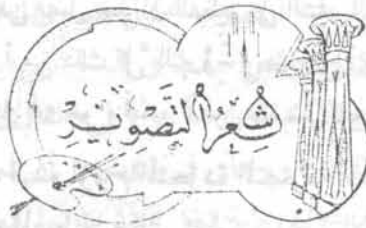 شِعْرُ التَّصْوِيْر